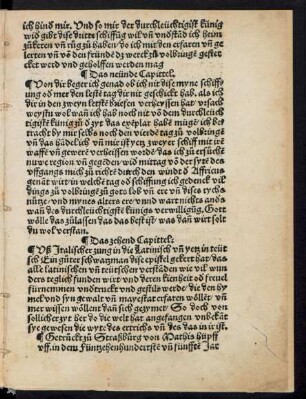 ich hind mir. Und so mir der durchleüchtigist künig
wid gibt dise dritte schiffūg wil vñ vndstād ich heim
zůkeren vñ rūg zů haben/ do ich mit den erfaren vñ ge
lerten vñ vō den fründē dz werck zů volbringē gester
cket werd vnd geholffen werden mag
¶ Das neünde Capittel.
¶ Von dir beger ich genad ob ich nit dise myne schiff
ung od mer den lesten tag dir nit geschickt hab. als ich
dir in den zweyn letstē briefen verheyssen hat
vrsach
weystu wol wañ ich hab noch nit vō dem durchleüch
tigistē künig
ich be
trach by mir selbs noch den vierdē tag zů volbringē
vñ das hādel ich vñ mir ist yetz zwey er schiff mit ire
waffē vñ gewerē verheissen worde das ich zů ersůchē
nuwe region vñ gegden wid mittag vō der sytē des
vffgangs mich zů richtē durch den windt d Affricus
genāt wirt in welche tag od schiffung ich gedenck vil
ding zů volbringē zů gots lob vñ eer vñ dises rychs
nütz/ vnd mynes alters ere vnnd wart nichts ands
wañ des durchleüchtigistē künigs verwilligūg. Gott
wölle das zůlassen das das best ist/ was dañ wirt solt
du wol verstan.
¶ Das zehend Capittel.
¶ Vß Italischer zung in die Latinisch vñ yetz in teüt
sch Ein gůter schwartzman dise epistel gekert hat/ das
alle latinischen vñ teütschen verstāden wie vil wun
ders teglich funden wirt/ vnd deren kienheit od freuel
fürnemmen vndtruckt vnd gestilt werde/ die den hy
mel vnd syn gewalt vñ mayestat erfaren wöllēt vñ
mer wissen wöllent dañ sich gezymet/ So doch von
sollicher zyt her do die welt hat angefangen vnbekāt
sye gewesen die wyte des ertrichs vñ des das in ir ist.
¶ Getrückt zů Straßburg von Mathis hüpff
vff. in dem Füntzehenhundertste vñ fünffte Jar